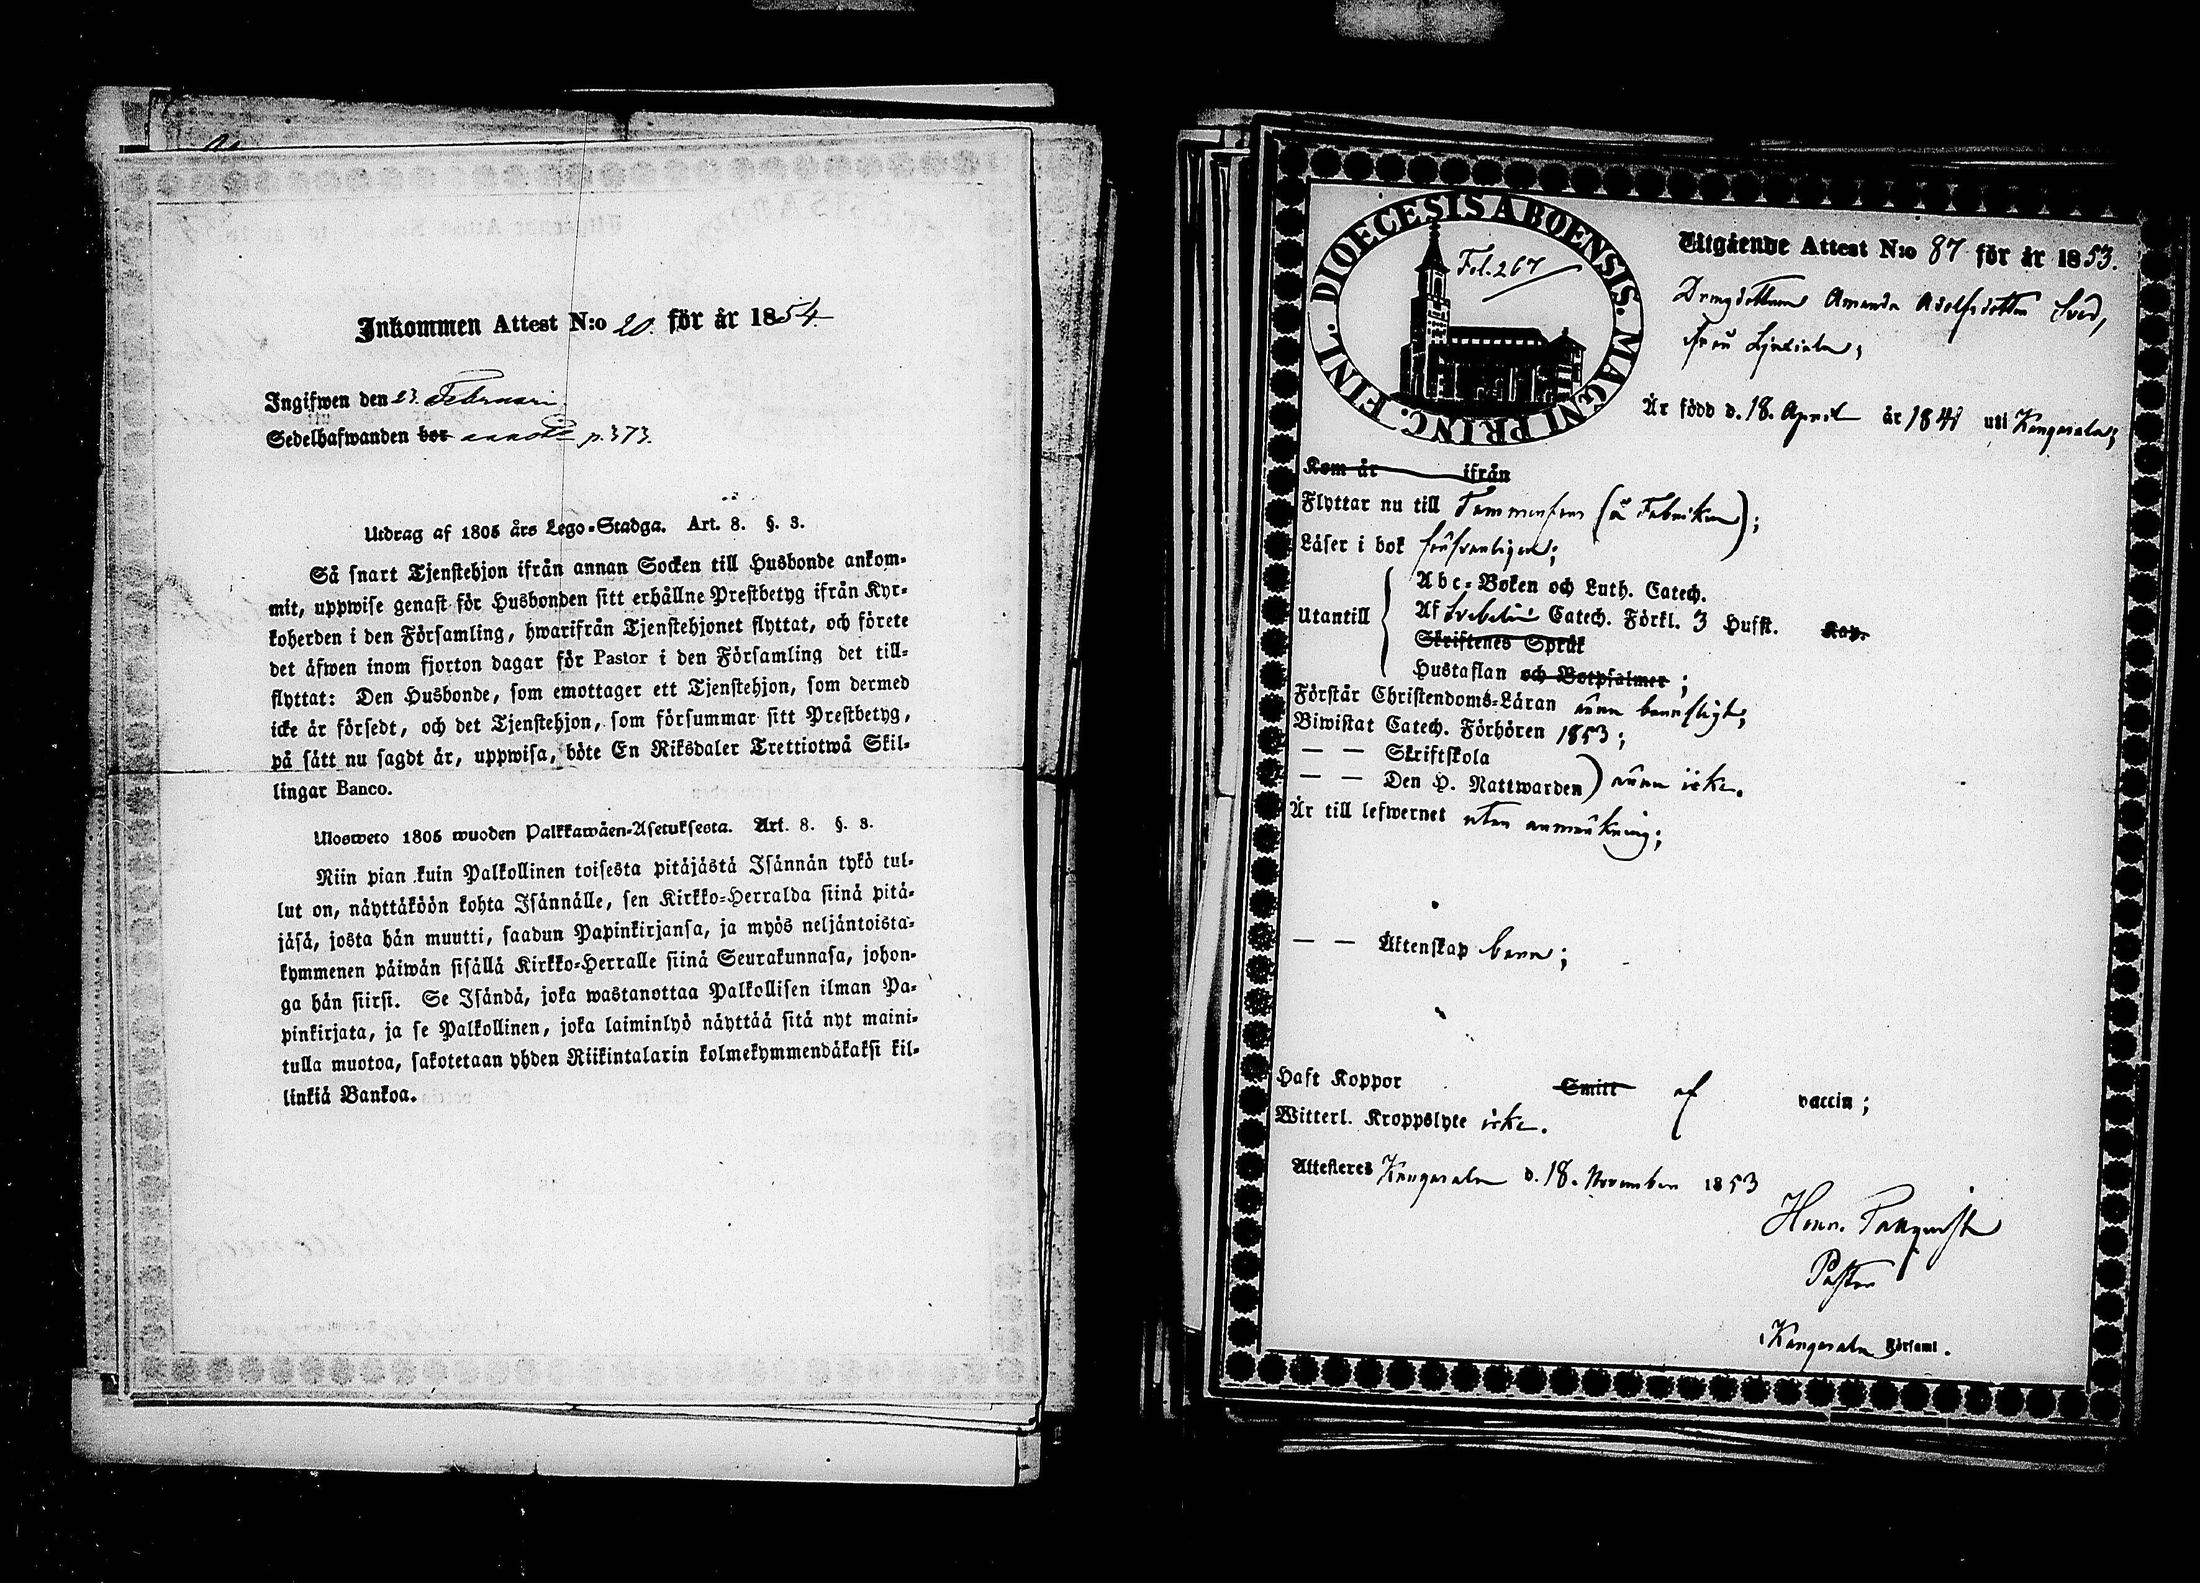 Inkommen Attest N:o 20. för år 1854.
Ingifwen den 23. Februari
Sedelhafwanden bor p. 373.
Utdrag af 1805 års Lego-Stadga. Art. 8. §. 3.
Så snart Tjenstehjon ifrån annan Socken till Husbonde ankom-
mit, uppwise genast för Husbonden sitt erhållne Prestbetyg ifrån Kyr-
koherden i den Församling, hwarifrån Tjenstehjonet flyttat, och förete
det äfwen inom fjorton dagar för Pastor i den Församling det till-
flyttat: Den Husbonde, som emottager ett Tjenstehjon, som dermed
icke är försedt, och det Tjenstehjon, som försummar sitt Prestbetyg,
på sätt nu sagdt är, uppwisa, böte En Riksdaler Trettiotwå Skil-
lingar Banco.
Ulosweto 1805 wuoden Palkkawäen-Asetuksesta. Art. 8. §. 3.
Niin pian kuin Palkollinen toisesta pitäjästä Isännän tykö tul-
lut on, näyttäköön kohta Isännälle, sen Kirkko-Herralda siinä pitä-
jäsä, josta hän muutti, saadun Papinkirjansa, ja myös neljäntoista-
kymmenen päiwän sisällä Kirkko-Herralle siinä Seurakunnasa, johon-
ga hän siirsi. Se Isändä, joka wastanottaa Palkollisen ilman Pa-
pinkirjata, ja se Palkollinen, joka laiminlyö näyttää sitä nyt maini-
tulla muotoa, sakotetaan yhden Riikintalarin kolmekymmendäkaksi kil-
linkiä Bankoa.
DIOECESIS ABOENSIS. MAGNI PRINC. FINL.
Fol. 267
Utgående Attest N:o 87 för år 1853.
Drengdottren Amanda Adolfsdotter Sved,
ifrån Liuksiala;
Är född d. 18. April år 1841 uti Kangasala;
Kom år ifrån
Flyttar nu till Tammerfors (å Fabriken);
Läser i bok försvarligen;
Utantill
Abc-Boken och Luth. Catech.
Af Svebelii Catech. Förkl. 3 Hufst. Kap.
Skriftenes Språk
Hustaflan och Botpsalmer;
Förstår Christendoms-Läran ännu barnsligt,
Biwistat Catech. Förhören 1853;
— — Skriftskola
— — Den H. Nattwarden) ännu icke.
Är till lefwernet utan anmärkning;
— — Äktenskap barn;
Haft Koppor Smitt af vaccin;
Witterl. Kroppslyte icke.
Attesteres Kangasala d. 18. November 1853
Henr.
Pastor
i Kangasala Församl.